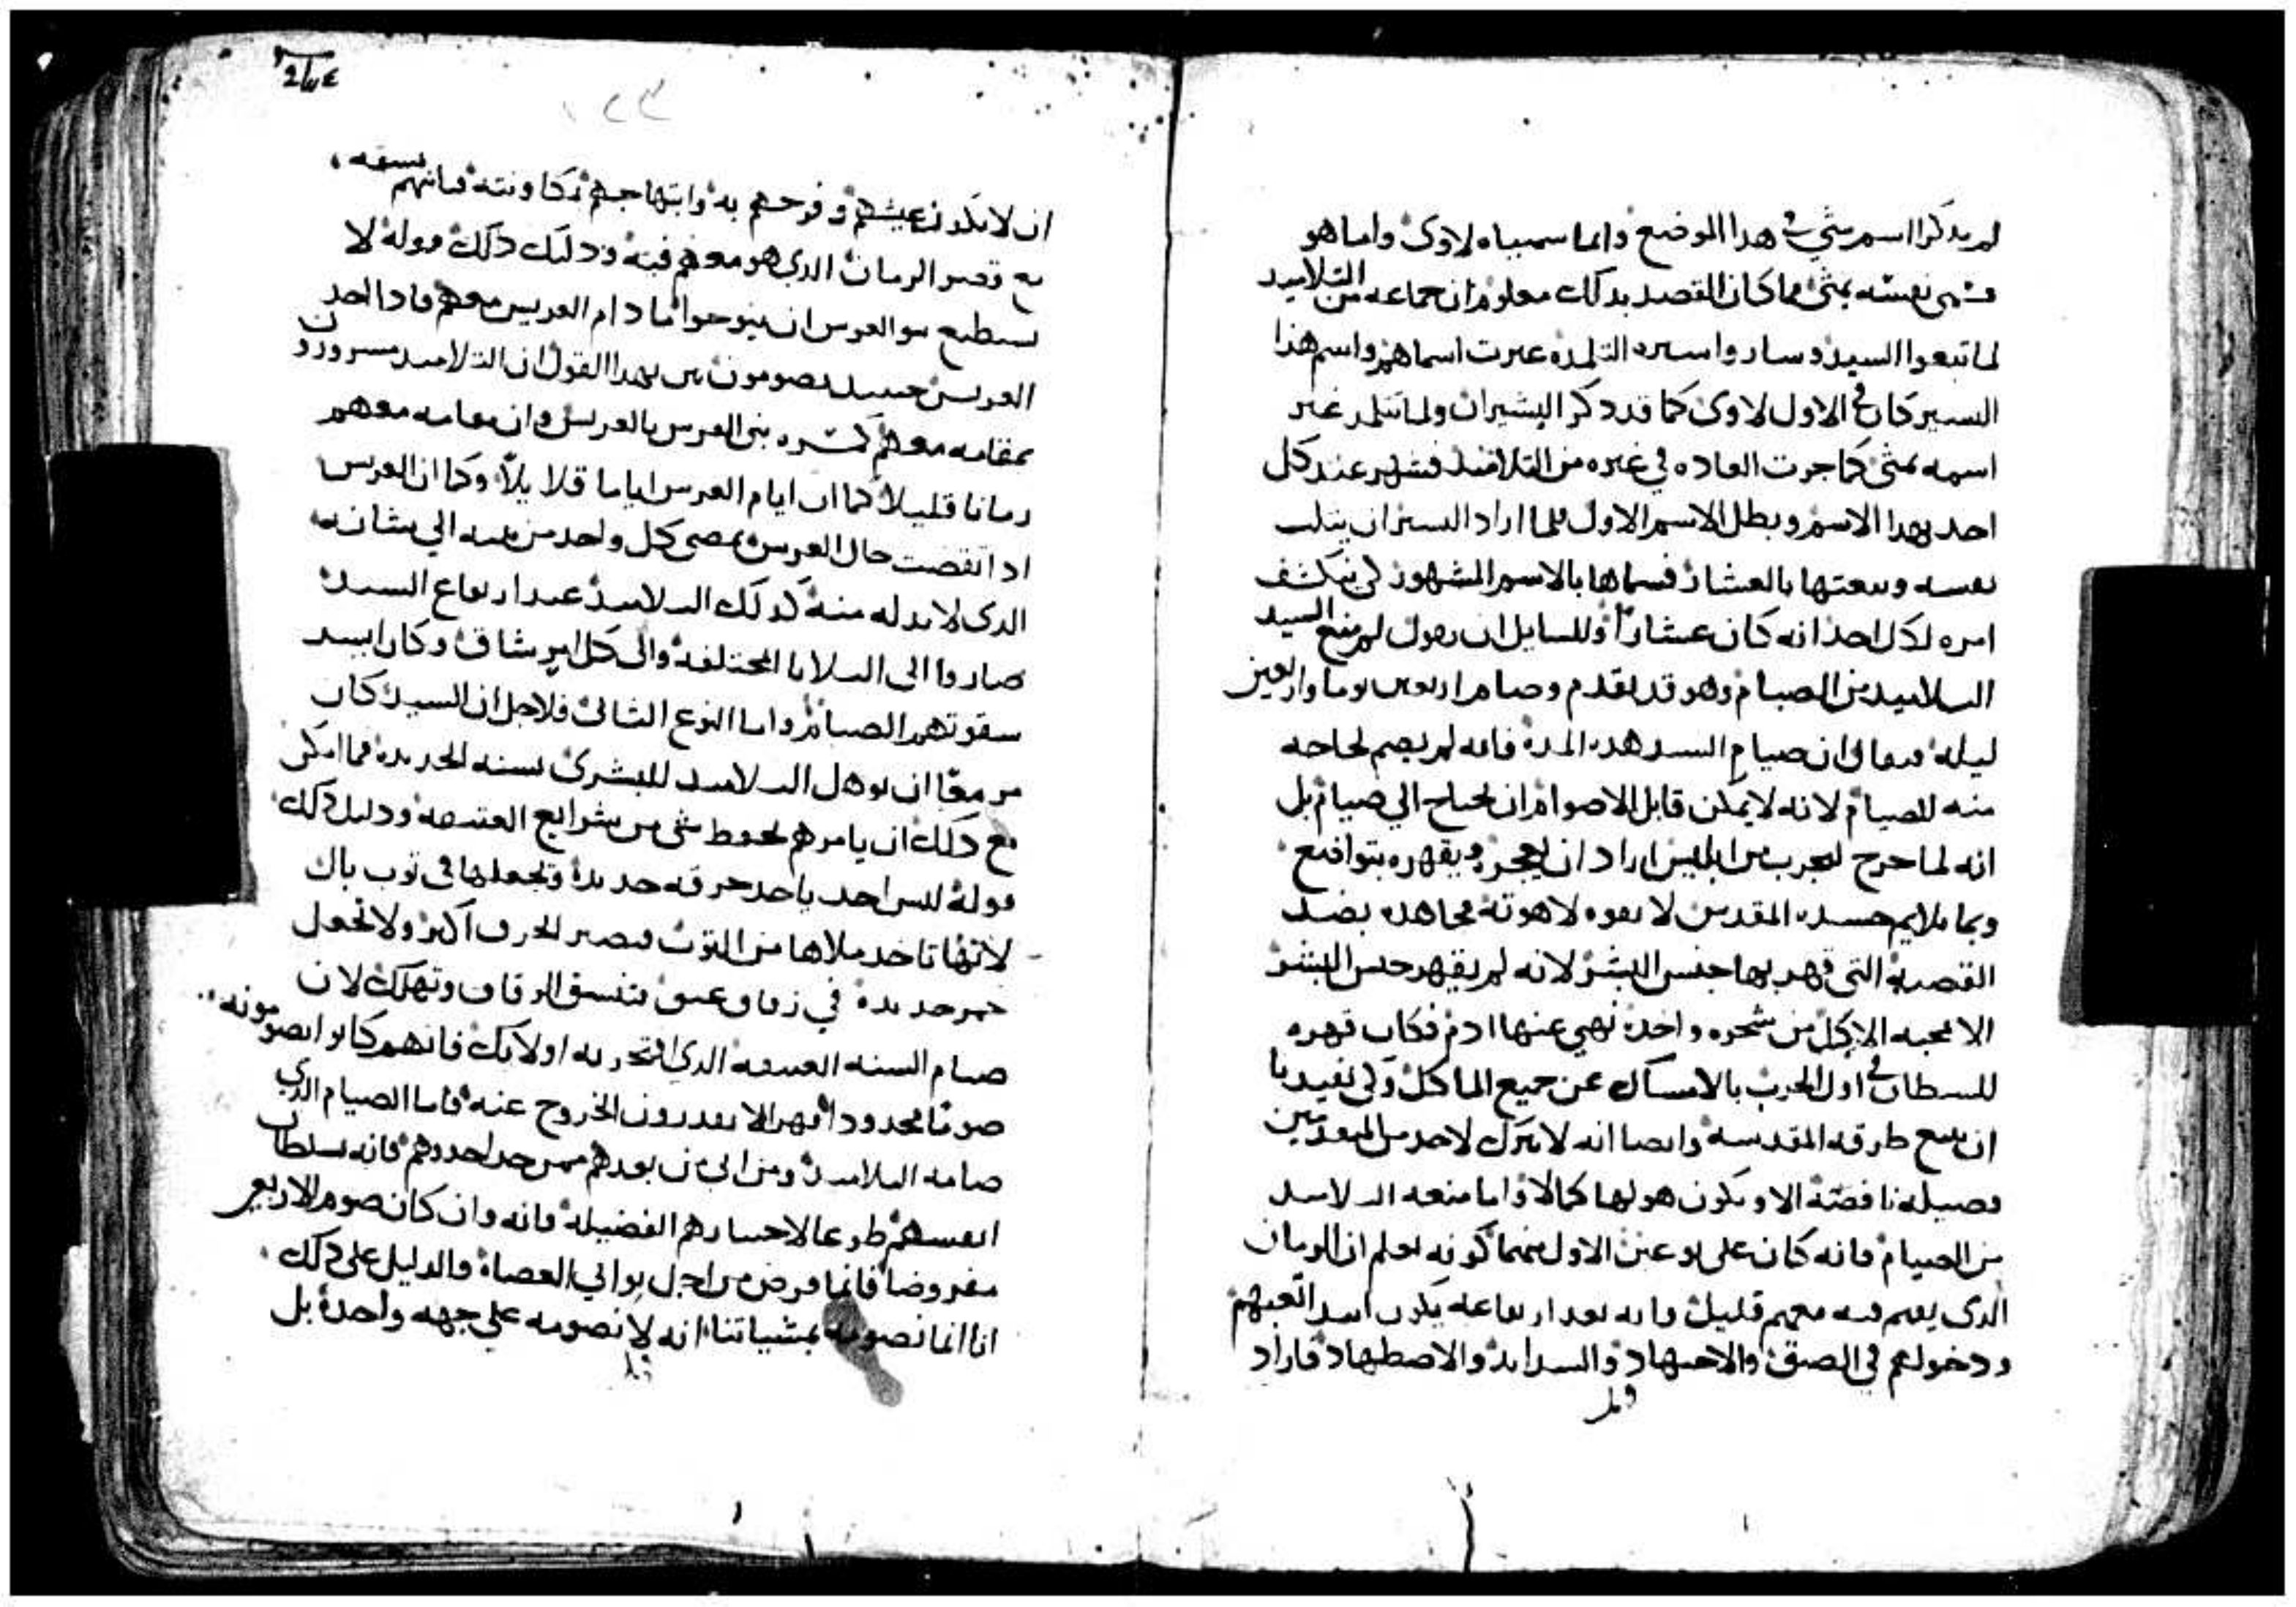 لم يذكر اسم متي في هدا الموضع وانما سمياه لاوي واما هو
فسمى نفسه بمتى فما كان القصد بدلك معلوم ان جماعه من التلاميد
لما تبعوا السيد وساروا بسيره التلمده غيرت اسماهم واسم هدا
السير كان في الاول لاوي كما قد دكر البشيران ولما تتلمد غير
اسمه بمتى كما جرت العاده في غيره من التلاميد فشهر عند كل
احد بهدا الاسم وبطل الاسم الاول فلما اراد السير ان يثلب
نفسه وينعتها بالعشار فسماها بالاسم المشهور لكي ينكشف
امره لكل احد انه كان عشارا وللسايل ان يقول لم منع السيد
التلاميد من الصيام وهو قد تقدم وصام اربعين يوما واربعين
ليله فيقال ان صيام السيد هده المده فانه لم يصم لحاجه
منه للصيام لانه لا يمكن قابل الاصوام ان يحتاج الي صيام بل
انه لما خرج ليجرب من ابليس اراد ان يعجزه ويقهره بتواضع
وبما يلايم جسده المقدس لا بقوه لاهوته مجاهده بضد
القضيه التي قهر بها جنس البشر لانه لم يقهر جنس البشر
الا محبه الاكل من شجره واحده نهي عنها ادم فكان قهره
للشيطان في اول الحرب بالامساك عن جميع الماكل ولكي يفيدنا
ان نتبع طرقه المقدسه وايضا انه لا يترك لاحد من المتقدمين
فضيله ناقصه الا ويكون هو لها كمالا واما منعه التلاميد
من الصيام فانه كان علي نوعين الاول منهما كونه يعلم ان الزمان
الدي يقيم فيه معهم قليل وانه بعد ارتفاعه يكون ابتدا تعبهم
ودخولهم في الضيق والاجتهاد والشدايد والاضطهاد فاراد
ان لا يكون عيشهم وفرحهم به وابتهاجهم فانهم بسعه
مع قصر الزمان الدي هو معهم فيه ودليل دلك قوله لا
يستطيع بنو العرس ان ينوحوا ما دام العريس معهم فادا اخد
العريس حينيد يصومون بين بهدا القول ان التلاميد مسرورون
بمقامه معهم كمسره بني العرس بالعريس وان مقامه معهم
زمانا قليلا كما ان ايام العرس اياما قلايلا وكما ان العرس
ادا انقضت حال العرس يمضي كل واحد من بنيه الي شانه
الدي لا بد له منه كدلك التلاميد عند ارتفاع السيد
صاروا الى البلايا المختلفه والى كل امر شاق وكان ابتدا
شقوتهم الصيام واما النوع الثاني فلاجل ان السيد كان
مزمعا ان يوهل التلاميد للبشرى بسنه الجديده فما امكن
مع دلك ان يامرهم بحفظ شي من شرايع العتيقه ودليل دلك
قوله ليس احد ياخد خرقه جديده ويجعلها في توب بال
لانها تاخد ملاها من التوب فيصير الخرق اكبر ولا تجعل
خمر جديده في زقاق عتيق فتنشق الزقاق وتهلك لان
صيام السنه العتيقه الدي افتخر به اولايك فانهم كانوا يصومونه
صوما محدودا قهرا لا يقدرون الخروج عنه فاما الصيام الدي
صامه التلاميد ومن اتى من بعدهم ممن حدا حدوهم فانه بسلطان
انفسهم طوعا لاختيارهم الفضيله فانه وان كان صوم الاربعين
مفروضا فانما فرض من اجل تواني العصاه والدليل على دلك
انا انما نصومه بمشياتنا انه لا نصومه علي جهه واحده بل